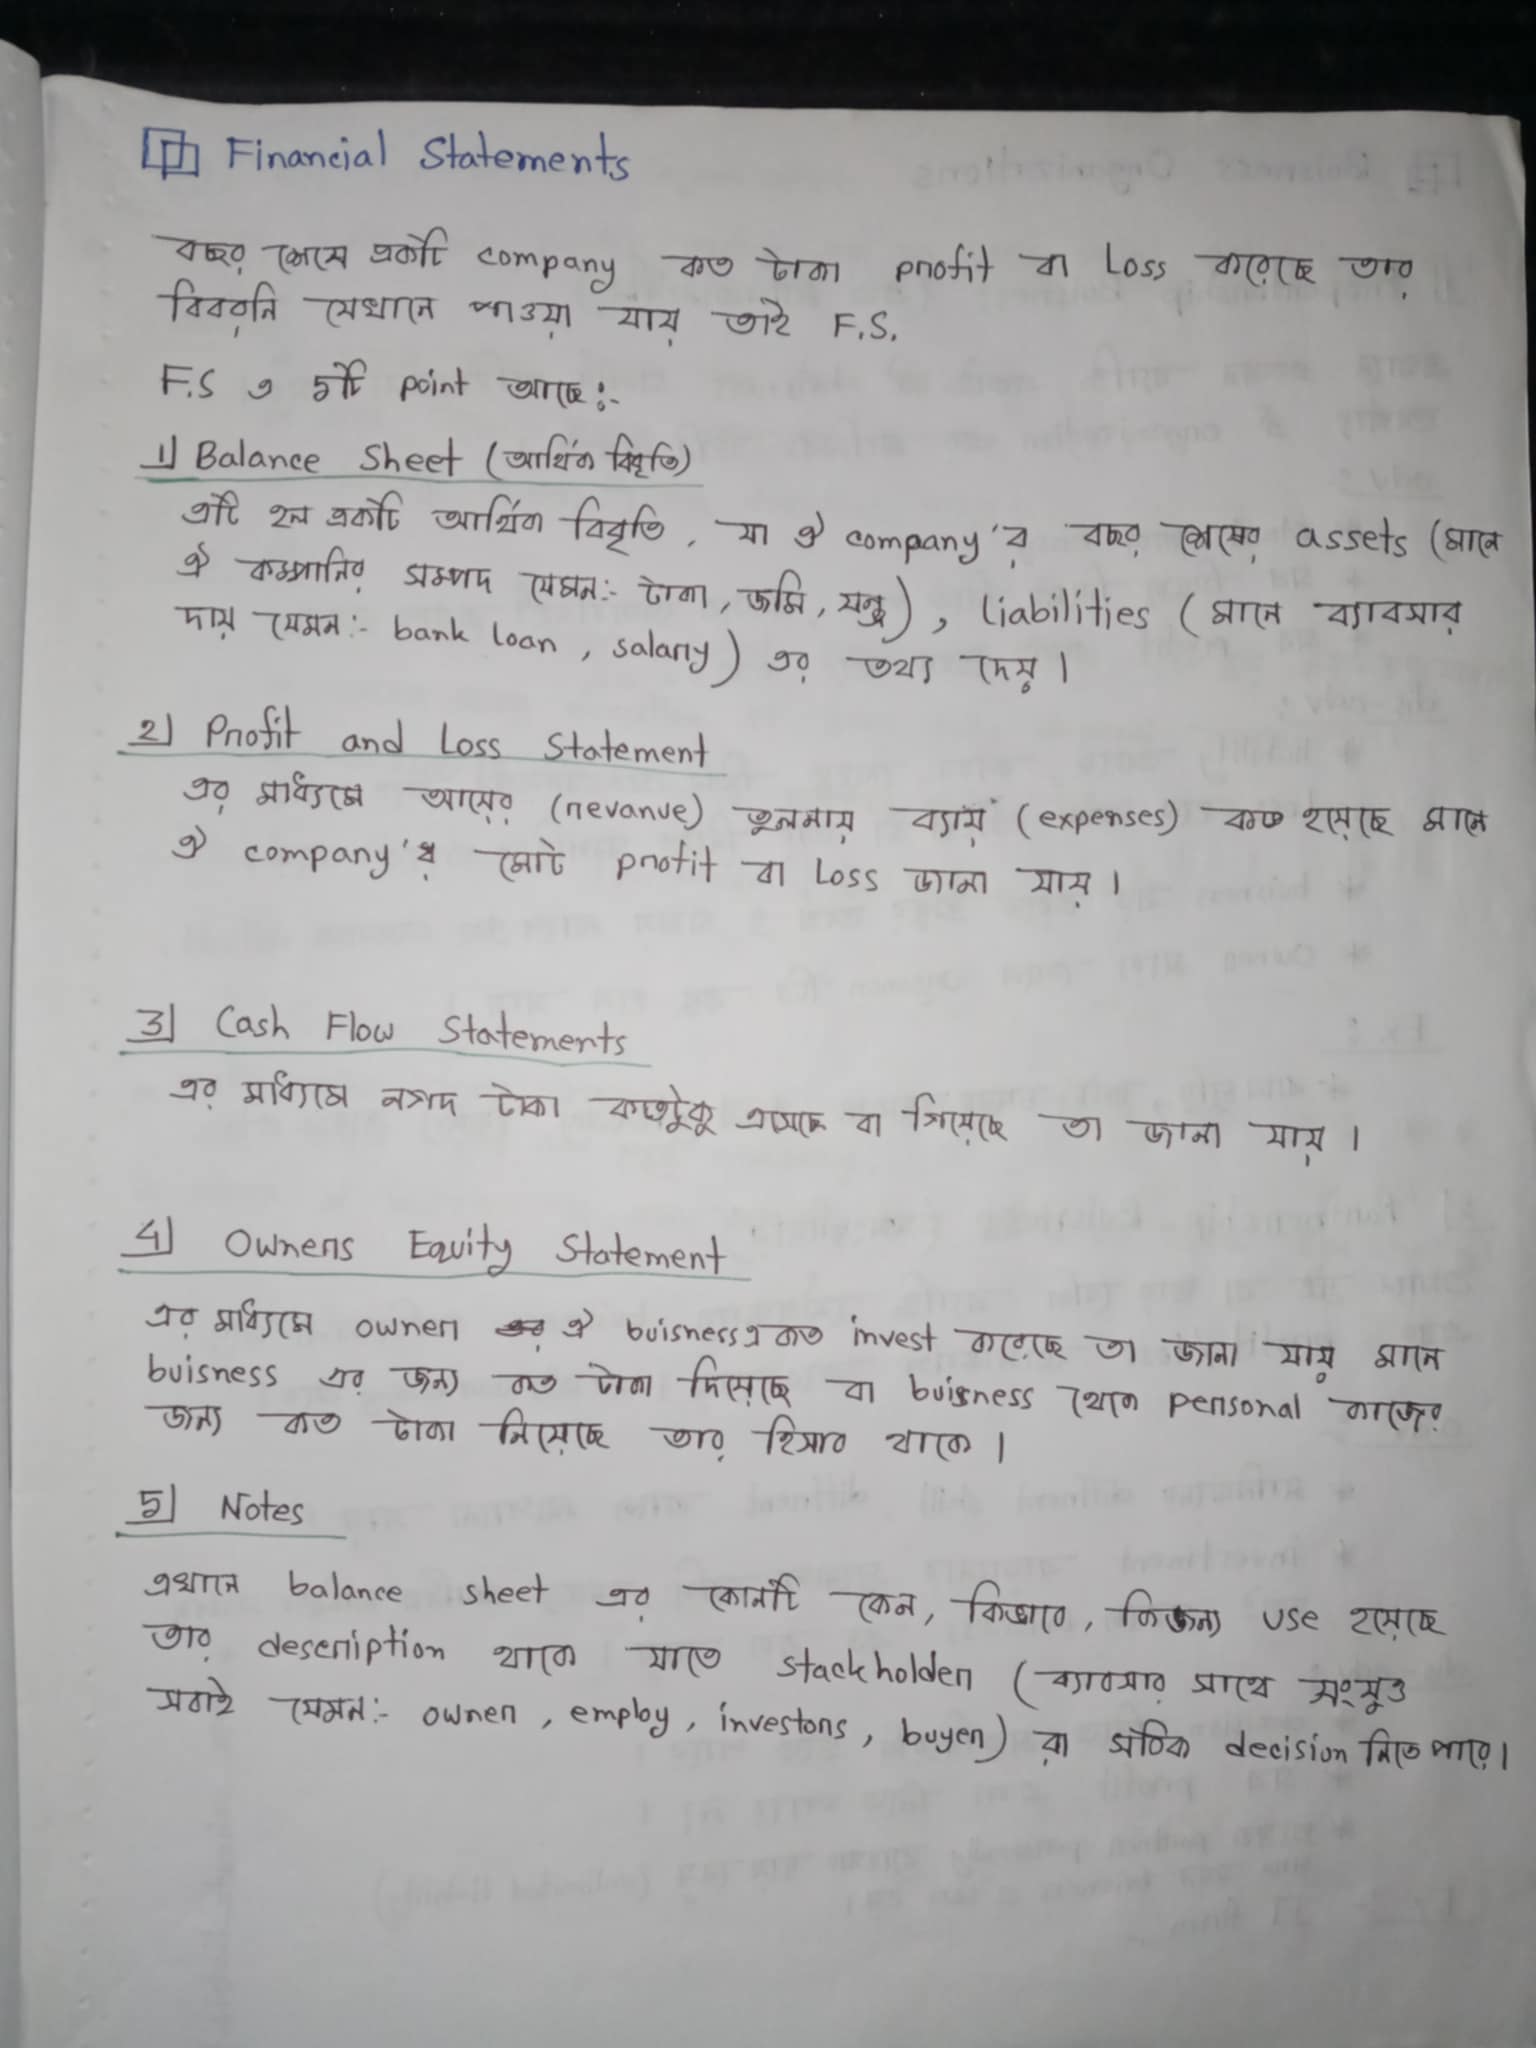 Financial Statements
বছর শেষে একটি company কত টাকা profit বা Loss করেছে তার
বিবরনি যেখানে পাওয়া যায় তাই F.S.
F.S এ ৫টি point আছে:-
1) Balance Sheet (আর্থিক বিবৃতি)
এটি হল একটি আর্থিক বিবৃতি, যা ঐ company'র বছর শেষের assets (মানে
ঐ কম্পানির সম্পদ যেমন:- টাকা, জমি, যন্ত্র), Liabilities (মানে ব্যাবসার
দায় যেমন:- bank loan, salary) এর তথ্য দেয়।
2) Profit and Loss Statement
এর মাধ্যমে আয়ের (revanue) তুলনায় ব্যায় (expenses) কত হয়েছে মানে
ঐ company'র মোট profit বা Loss জানা যায়।
3) Cash Flow Statements
এর মাধ্যমে নগদ টাকা কতটুকু এসেছে বা গিয়েছে তা জানা যায়।
4) Owners Equity Statement
এর মাধ্যমে owner ঐ buisness এ কত invest করেছে তা জানা যায় মানে
buisness এর জন্য কত টাকা দিয়েছে বা buisness থেকে personal কাজের
জন্য কত টাকা নিয়েছে তার হিসাব থাকে।
5) Notes
এখানে balance sheet এর কোনটি কেন, কিভাবে, কিজন্য use হয়েছে
তার description থাকে যাতে stackholder (ব্যাবসার সাথে সংযুক্ত
সবাই যেমন:- owner, employ, investors, buyer) রা সঠিক decision নিতে পারে।